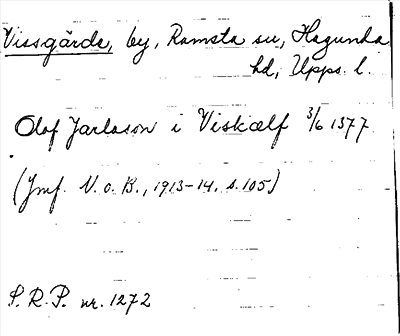 Vissgärde, by, Ramsta sn, Hagunda
hd, Upps. l.
Olof Jarlason i Viskælf 3/6 1377
(Jmf. N. o. B., 1913-14, s. 105)
S. R. P. nr. 1272